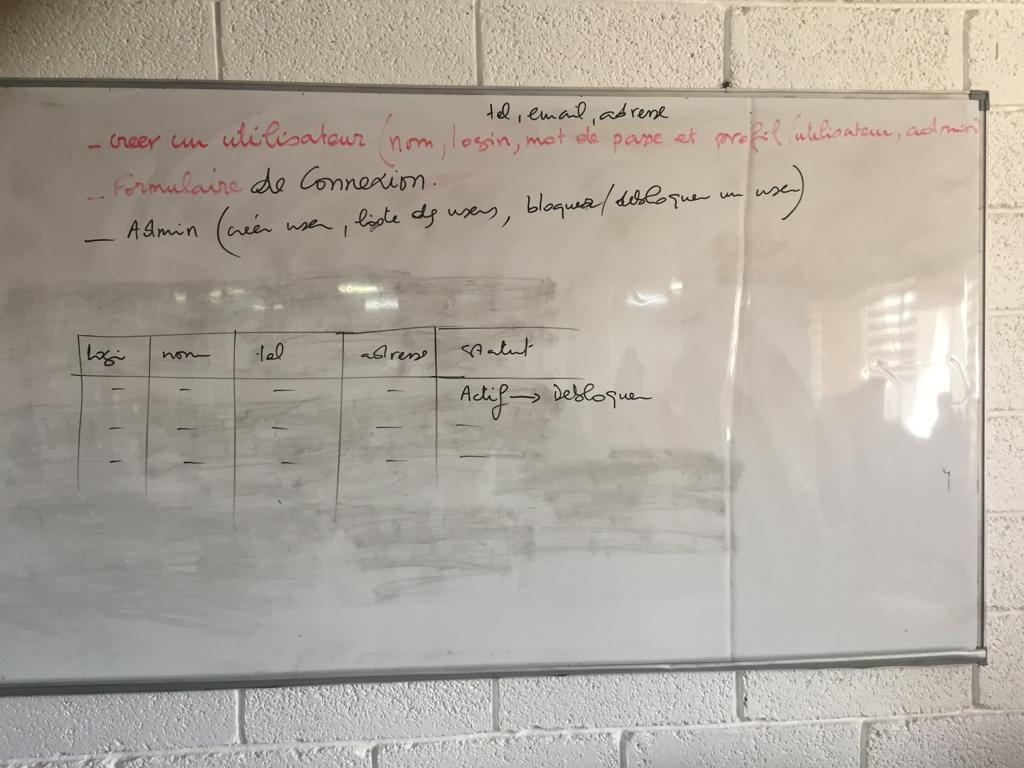 tel, email, adresse
- creer un utilisateur (nom, login, mot de passe et profil (utilisateur, admin)
- Formulaire de Connexion.
- Admin (créer user, liste des users, bloquer/debloquer un user)
login nom tel adresse statut
- - - - Actif → Debloquer
- - - - -
- - - - -